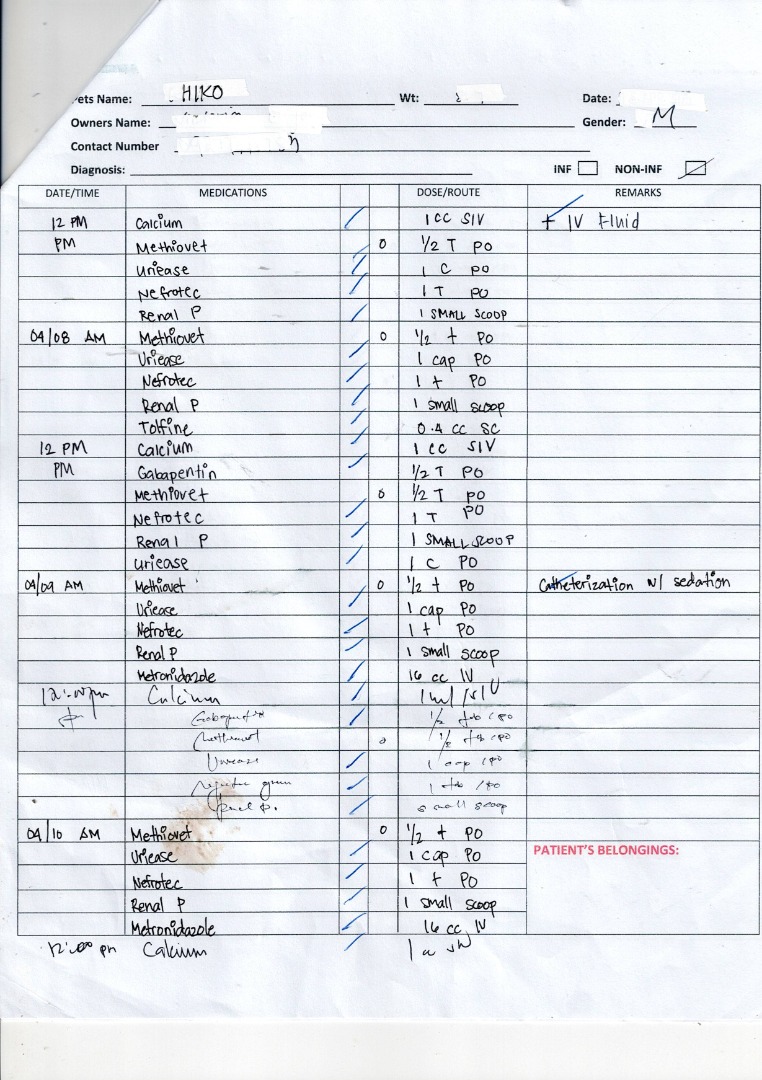 Pets Name: HIKO Wt: Date:
Owners Name: Gender: M
Contact Number
Diagnosis: INF NON-INF
DATE/TIME MEDICATIONS DOSE/ROUTE REMARKS
12 PM Calcium 1 cc SIV + IV Fluid
PM Methiovet 0 1/2 T PO
Uriease 1 C PO
Nefrotec 1 T PO
Renal P 1 SMALL SCOOP
04/08 AM Methiovet 0 1/2 t PO
Uriease 1 cap PO
Nefrotec 1 t PO
Renal P 1 small scoop
Tolfine 0.4 cc SC
12 PM Calcium 1 cc SIV
PM Gabapentin 1/2 T PO
Methiovet 0 1/2 T PO
Nefrotec 1 T PO
Renal P 1 SMALL SCOOP
uriease 1 C PO
04/09 AM Methiovet 0 1/2 t PO Catheterization w/ sedation
Uriease 1 cap PO
Nefrotec 1 t PO
Renal P 1 small scoop
Metronidazole 16 cc IV
Calcium 1 ml / SIV
Gabapentin 1/2 tab / PO
1/2 tab / PO
1 cap / PO
1 tab / PO
small scoop
04/10 AM Methiovet 0 1/2 t PO
Uriease 1 cap PO
Nefrotec 1 t PO
Renal P 1 small scoop
Metronidazole 16 cc IV
12:00 pm Calcium 1
PATIENT'S BELONGINGS: